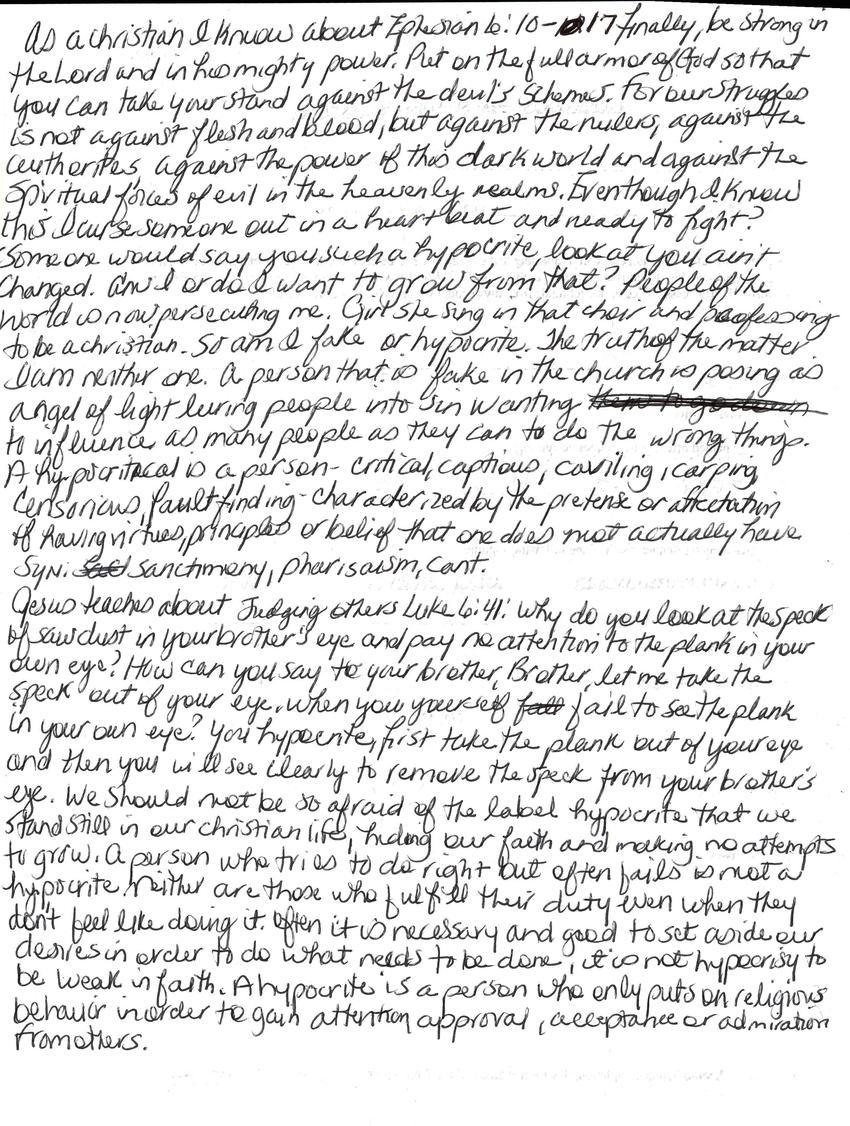 As a christian I know about Ephesian 6:10-17 finally, be strong in
the Lord and in his mighty power. Put on the full armor of God so that
you can take your stand against the devil's schemes. For our struggles
is not against flesh and blood, but against the rulers, against the
authorites, against the power of this dark world and against the
Spiritual forces of evil in the heavenly realms. Eventhough I know
this I curse someone out in a heart beat and ready to fight?
Someone would say you such a hypocrite, look at you ain't
changed. Am I or do I want to grow from that? People of the
world is now persecuting me. Girl she sing in that choir and professing
to be a christian. So am I fake or hypocrite. The truth of the matter
I am neither one. A person that is fake in the church is posing as
angel of light luring people into sin wanting them to go down
to influence as many people as they can to do the wrong things.
A hypocritacal is a person- critical, captious, caviling, carping,
Censorious, fault finding- characterized by the pretense or affectation
of having virtues, principles or belief that one does not actually have
Syn: Sanctimony, pharisaism, cant.
Jesus teaches about Judging others Luke 6:41: Why do you look at the speck
of sawdust in your brother's eye and pay no attention to the plank in your
own eye? How can you say to your brother, Brother, let me take the
speck out of your eye, when you yourself fail to see the plank
in your own eye? You hypocrite, first take the plank out of your eye
and then you will see clearly to remove the speck from your brother's
eye. We should not be so afraid of the label hypocrite that we
stand still in our christian life, hiding our faith and making no attempts
to grow. A person who tries to do right but often fails is not a
hypocrite. Neither are those who fulfill their duty even when they
don't feel like doing it. Often it is necessary and good to set aside our
desires in order to do what needs to be done, it is not hypocrisy to
be weak in faith. A hypocrite is a person who only puts on religious
behavior in order to gain attention, approval, acceptance or admiration
from others.